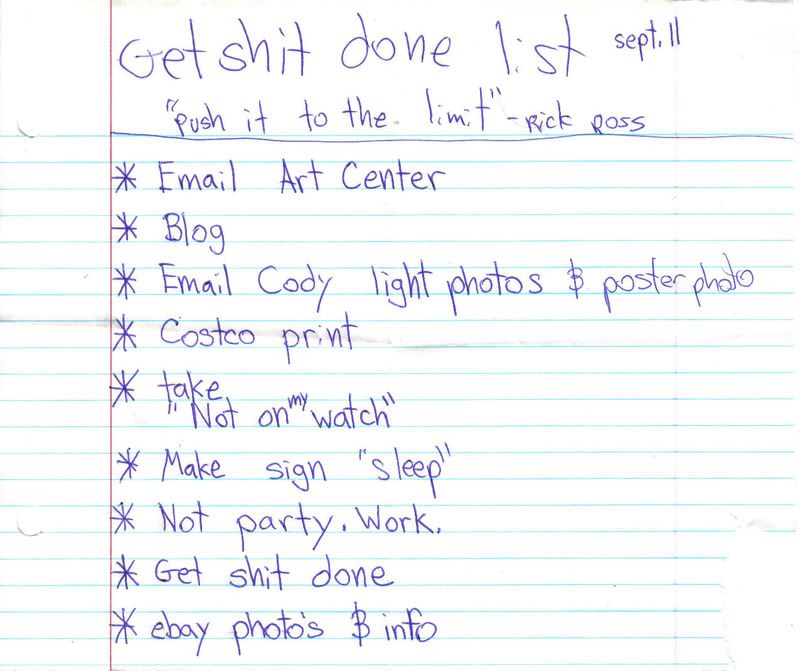 Get shit done list sept. 11
"push it to the limit" - Rick Ross
* Email Art Center
* Blog
* Email Cody light photos & poster photo
* Costco print
* take
"Not on my watch"
* Make sign "sleep"
* Not party. Work.
* Get shit done
* ebay photo's & info